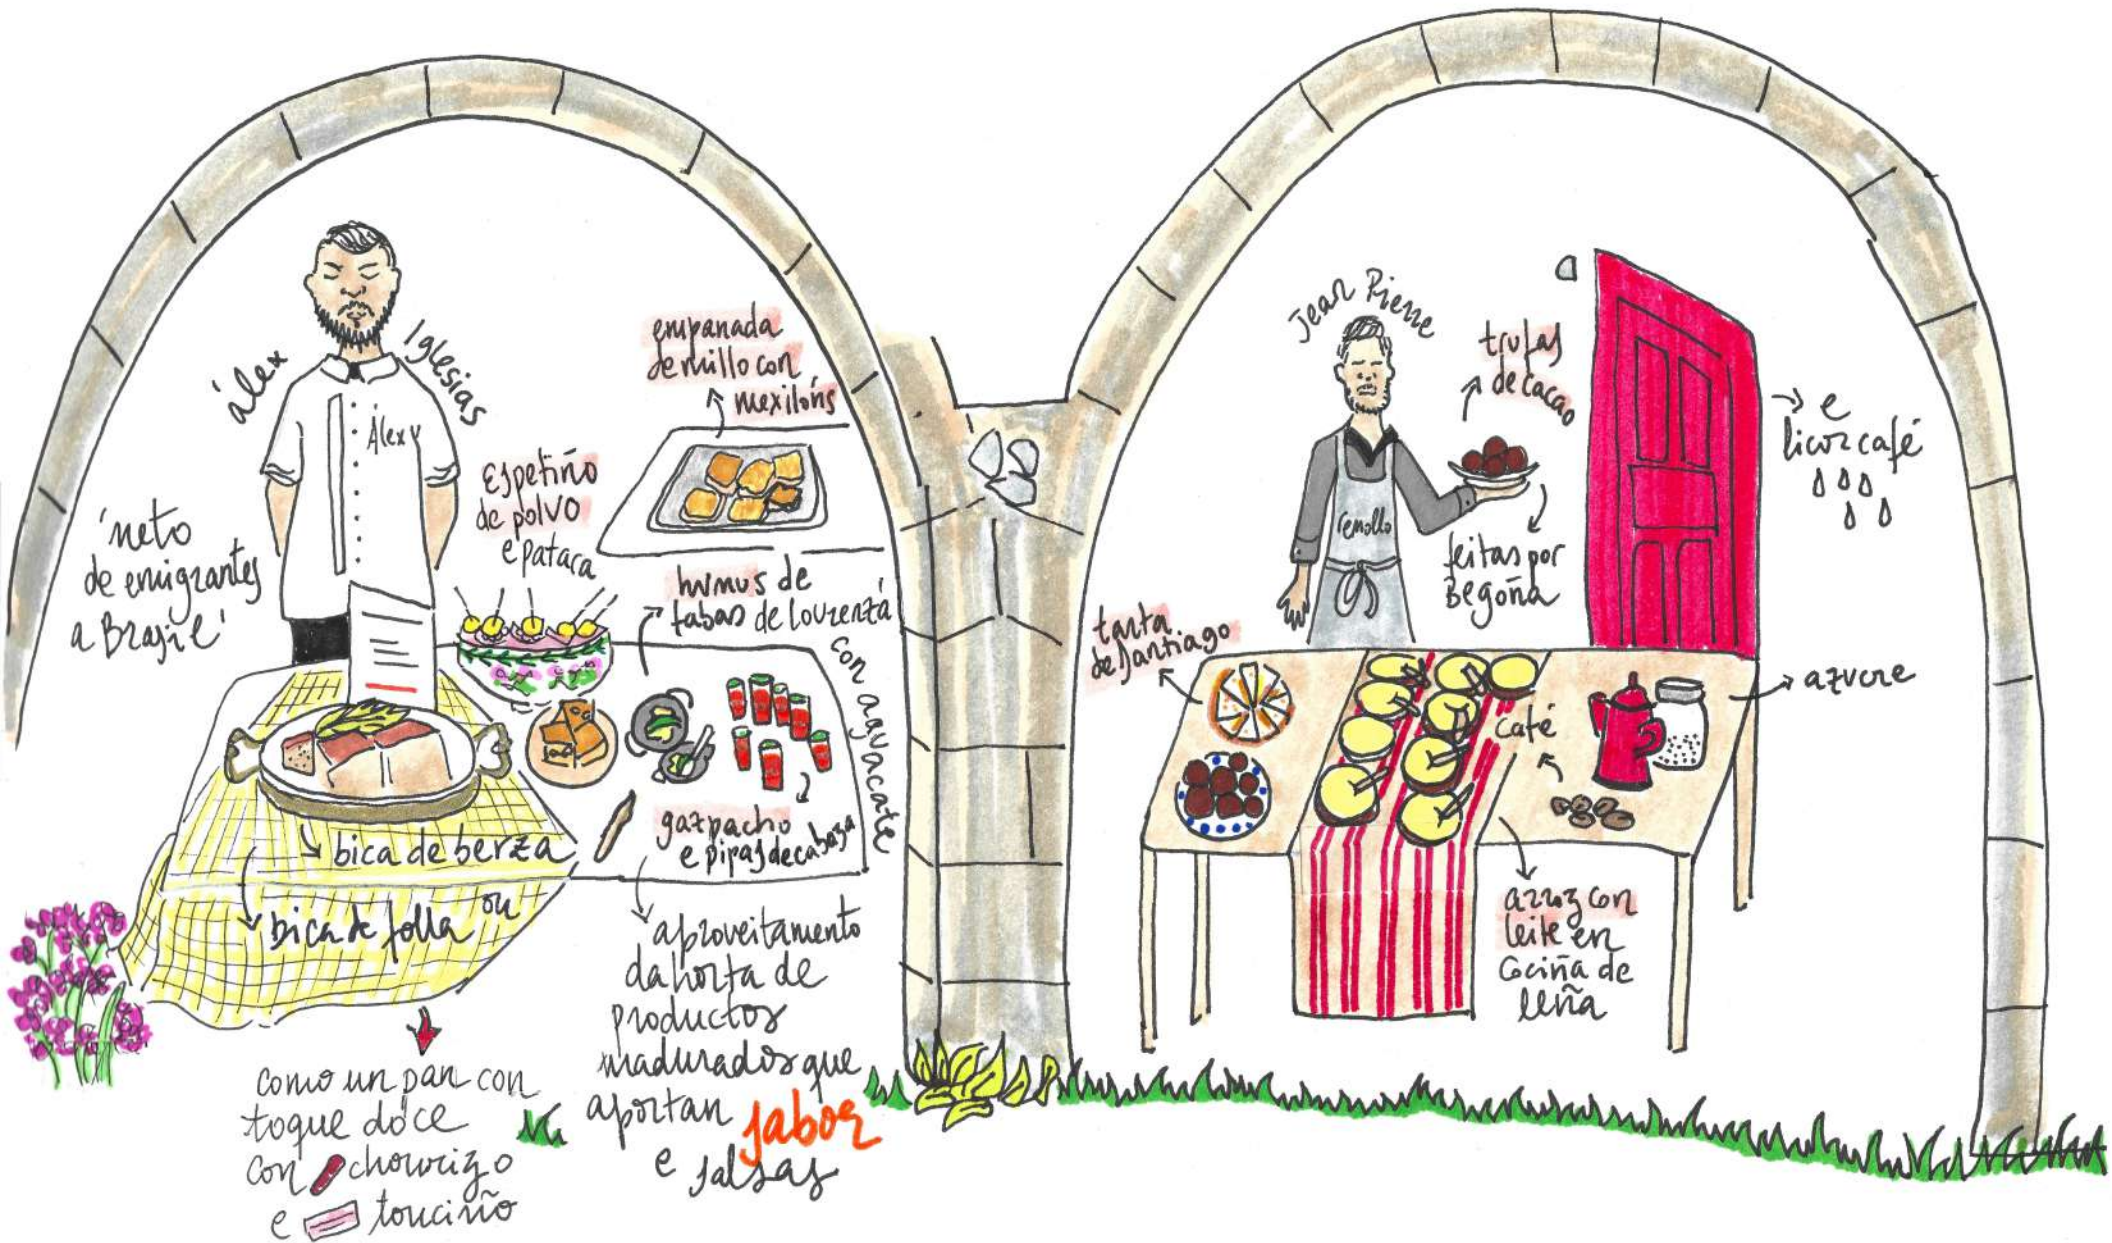 álex
Iglesias
Álex
'neto
de emigrantes
a Brasil'
espetiño
de polvo
e pataca
empanada
de millo con
mexilóns
humus de
fabas de Lourenzá
con aguacate
gazpacho
e pipas de cabaza
bica de berza
ou
bica de folla
como un pan con
toque doce
con chourizo
e touciño
aproveitamento
da horta de
productos
madurados que
aportan sabor
e salsas
Jean Pierre
remollo
trufas
de cacao
feitas por
Begoña
e
licor café
tarta
de Santiago
café
azucre
arroz con
leite en
cociña de
leña